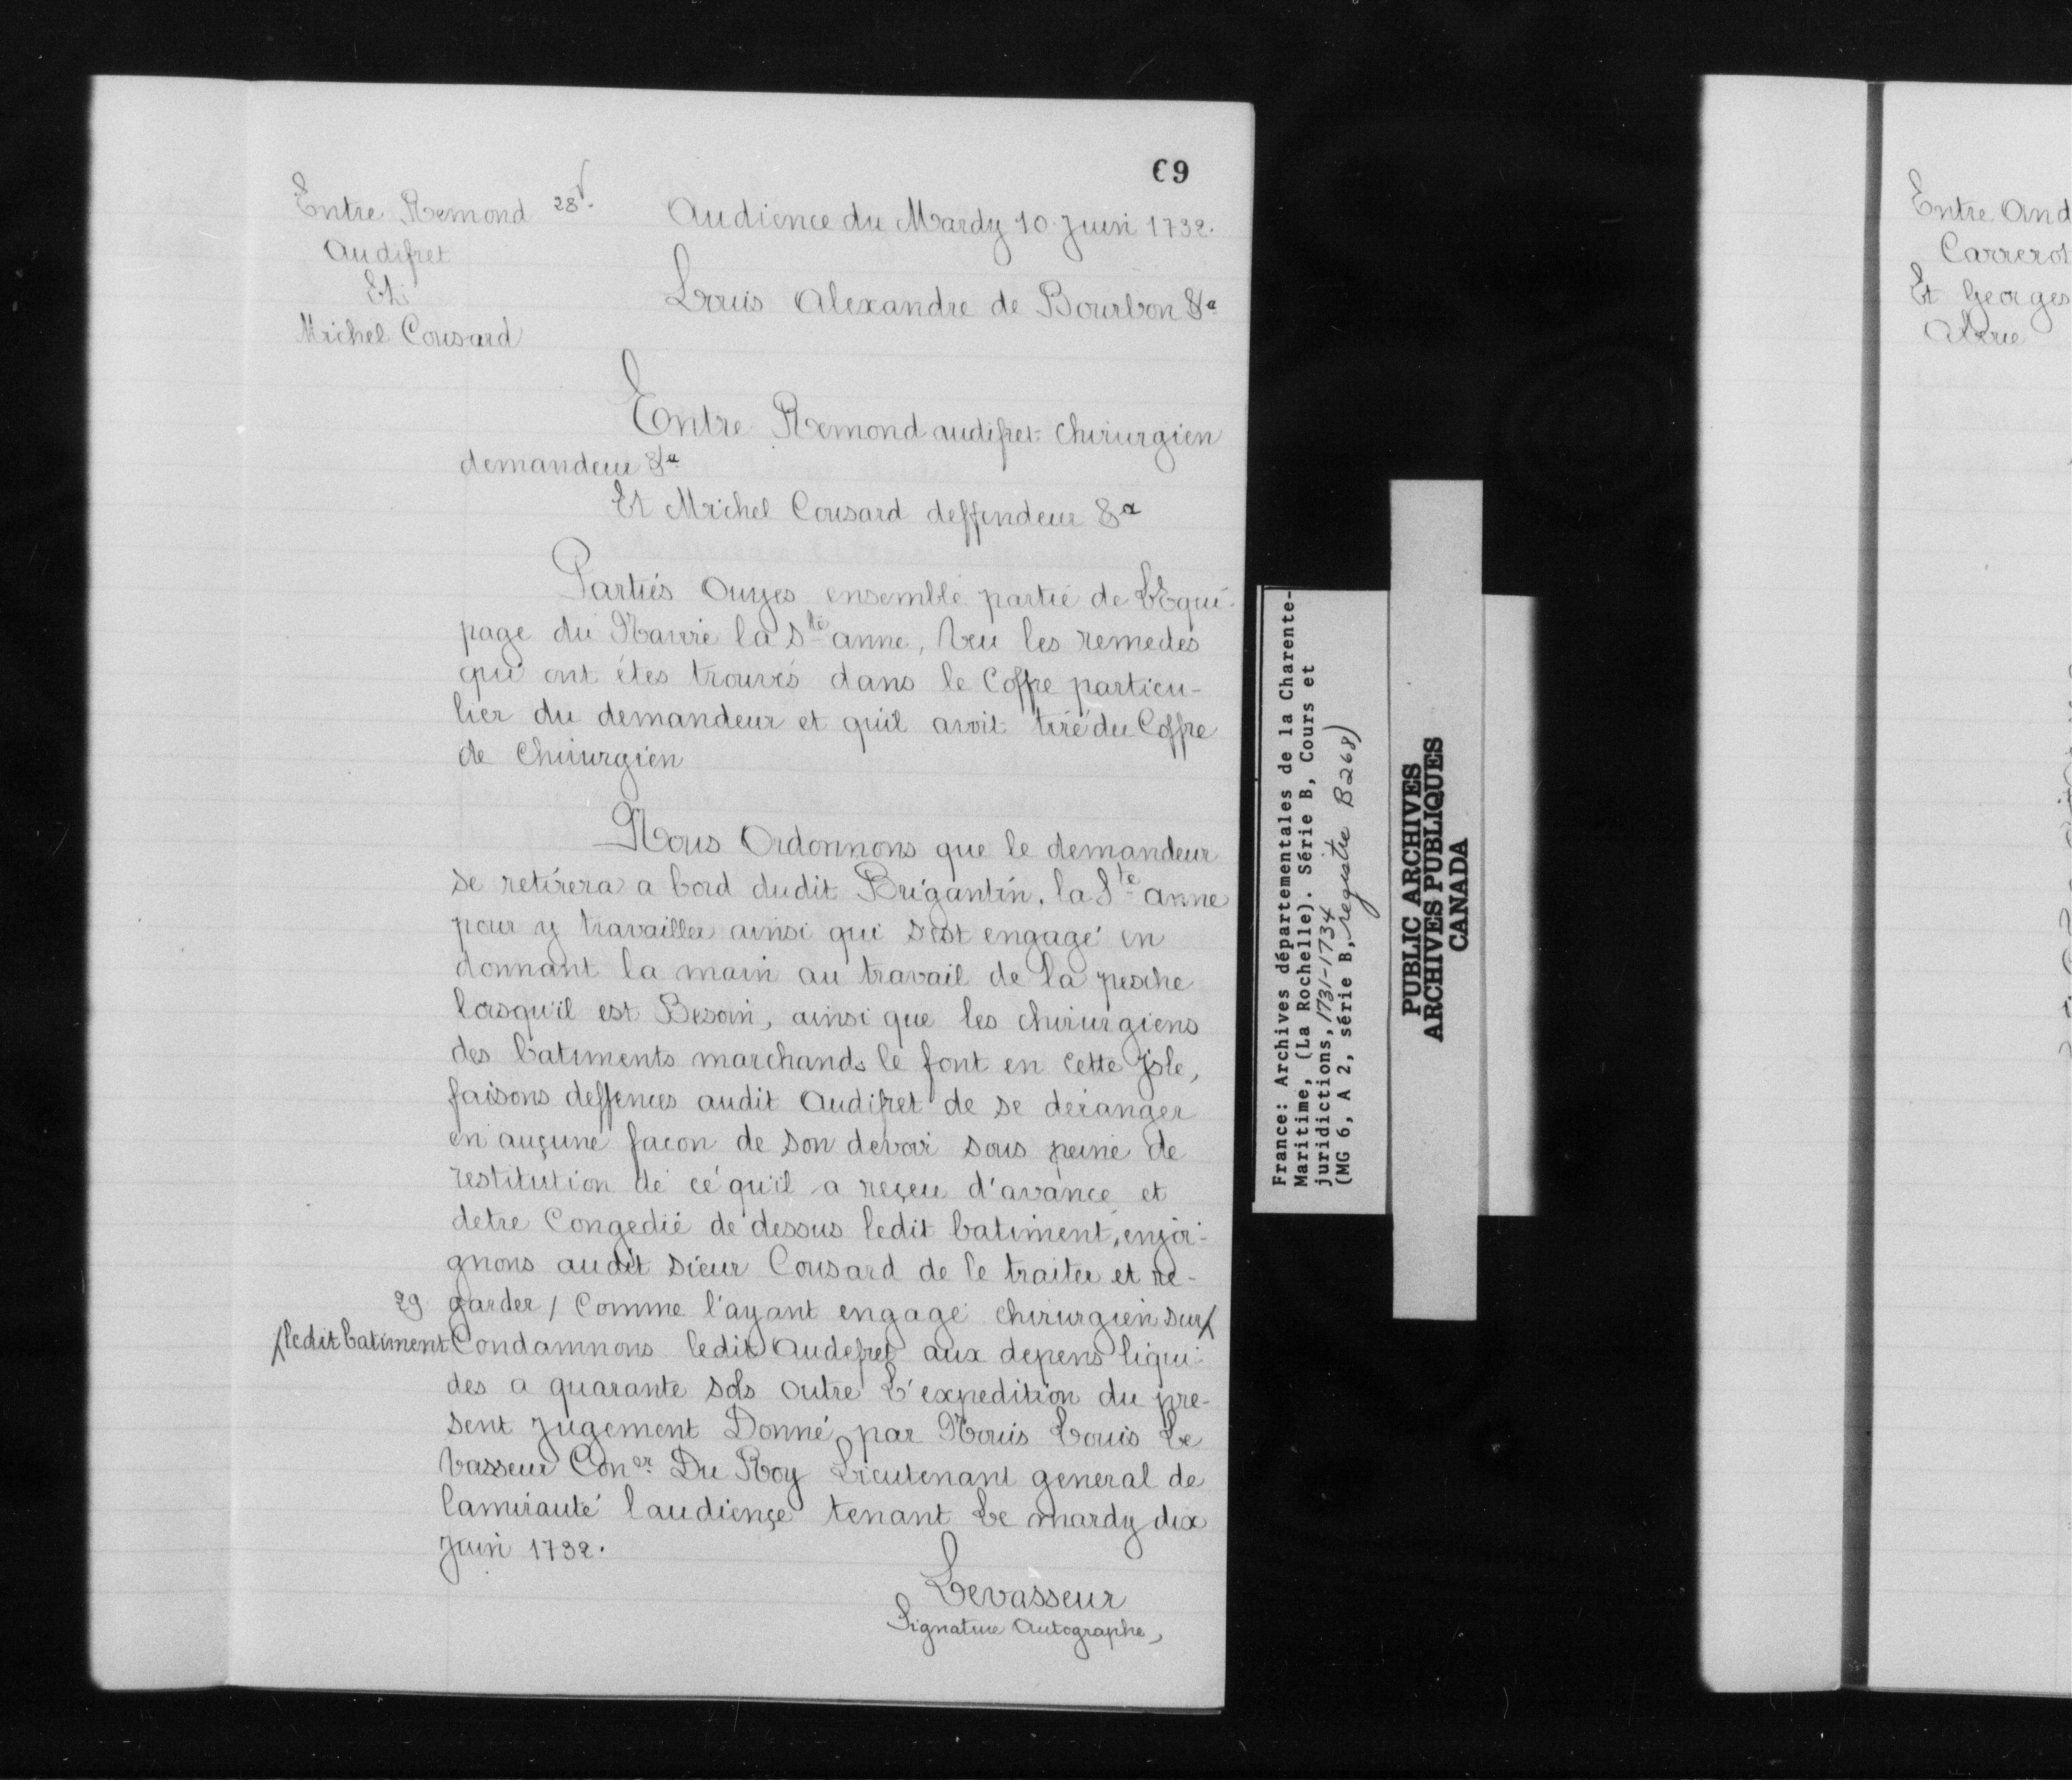 69
Entre Remond 28v.
Audifret
Et
Michel Cousard
Audience du Mardy 10 Juin 1732.
Louis Alexandre de Bourbon &a
Entre Remond audifret chirurgien
demandeur &a
Et Michel Cousard deffendeur &a
Partiés Ouyes ensemble partié de L'Equi-
page du Navire la Ste anne, Veu les remedes
qui ont étes trouvés dans le Coffre particu-
lier du demandeur et qu'il avoit tiré du Coffre
de Chirurgien
Nous Ordonnons que le demandeur
se retirera a bord dudit Brigantin, la Ste anne
pour y travailler ainsi qui s'est engagé en
donnant la main au travail de la pesche
lorsqu'il est Besoin, ainsi que les chirurgiens
des batiments marchands le font en cette Jsle,
faisons deffences audit Audifret de se deranger
en auçune facon de son devoir sous peine de
restitution de ce qu'il a reçeu d'avance et
detre Congedié de dessus ledit batiment, enjoi-
gnons audit sieur Cousard de le traiter et re-
29 garder / Comme l'ayant engagé chirurgien sur/
/ledit batiment Condamnons ledit Audefret aux depens liqui-
des a quarante sols outre L'expedition du pre-
sent jugement Donné par Nous Louis Le
Vasseur Coner Du Roy Lieutenant general de
lamirauté l'audiençe tenant Le mardy dix
Juin 1732.
Levasseur
Signature Autographe,
France: Archives départementales de la Charente-
Maritime, (La Rochelle). Série B, Cours et
juridictions, 1731-1734
(MG 6, A 2, série B, registre B268)
PUBLIC ARCHIVES
ARCHIVES PUBLIQUES
CANADA
Entre And
Carrerot
Et Georges